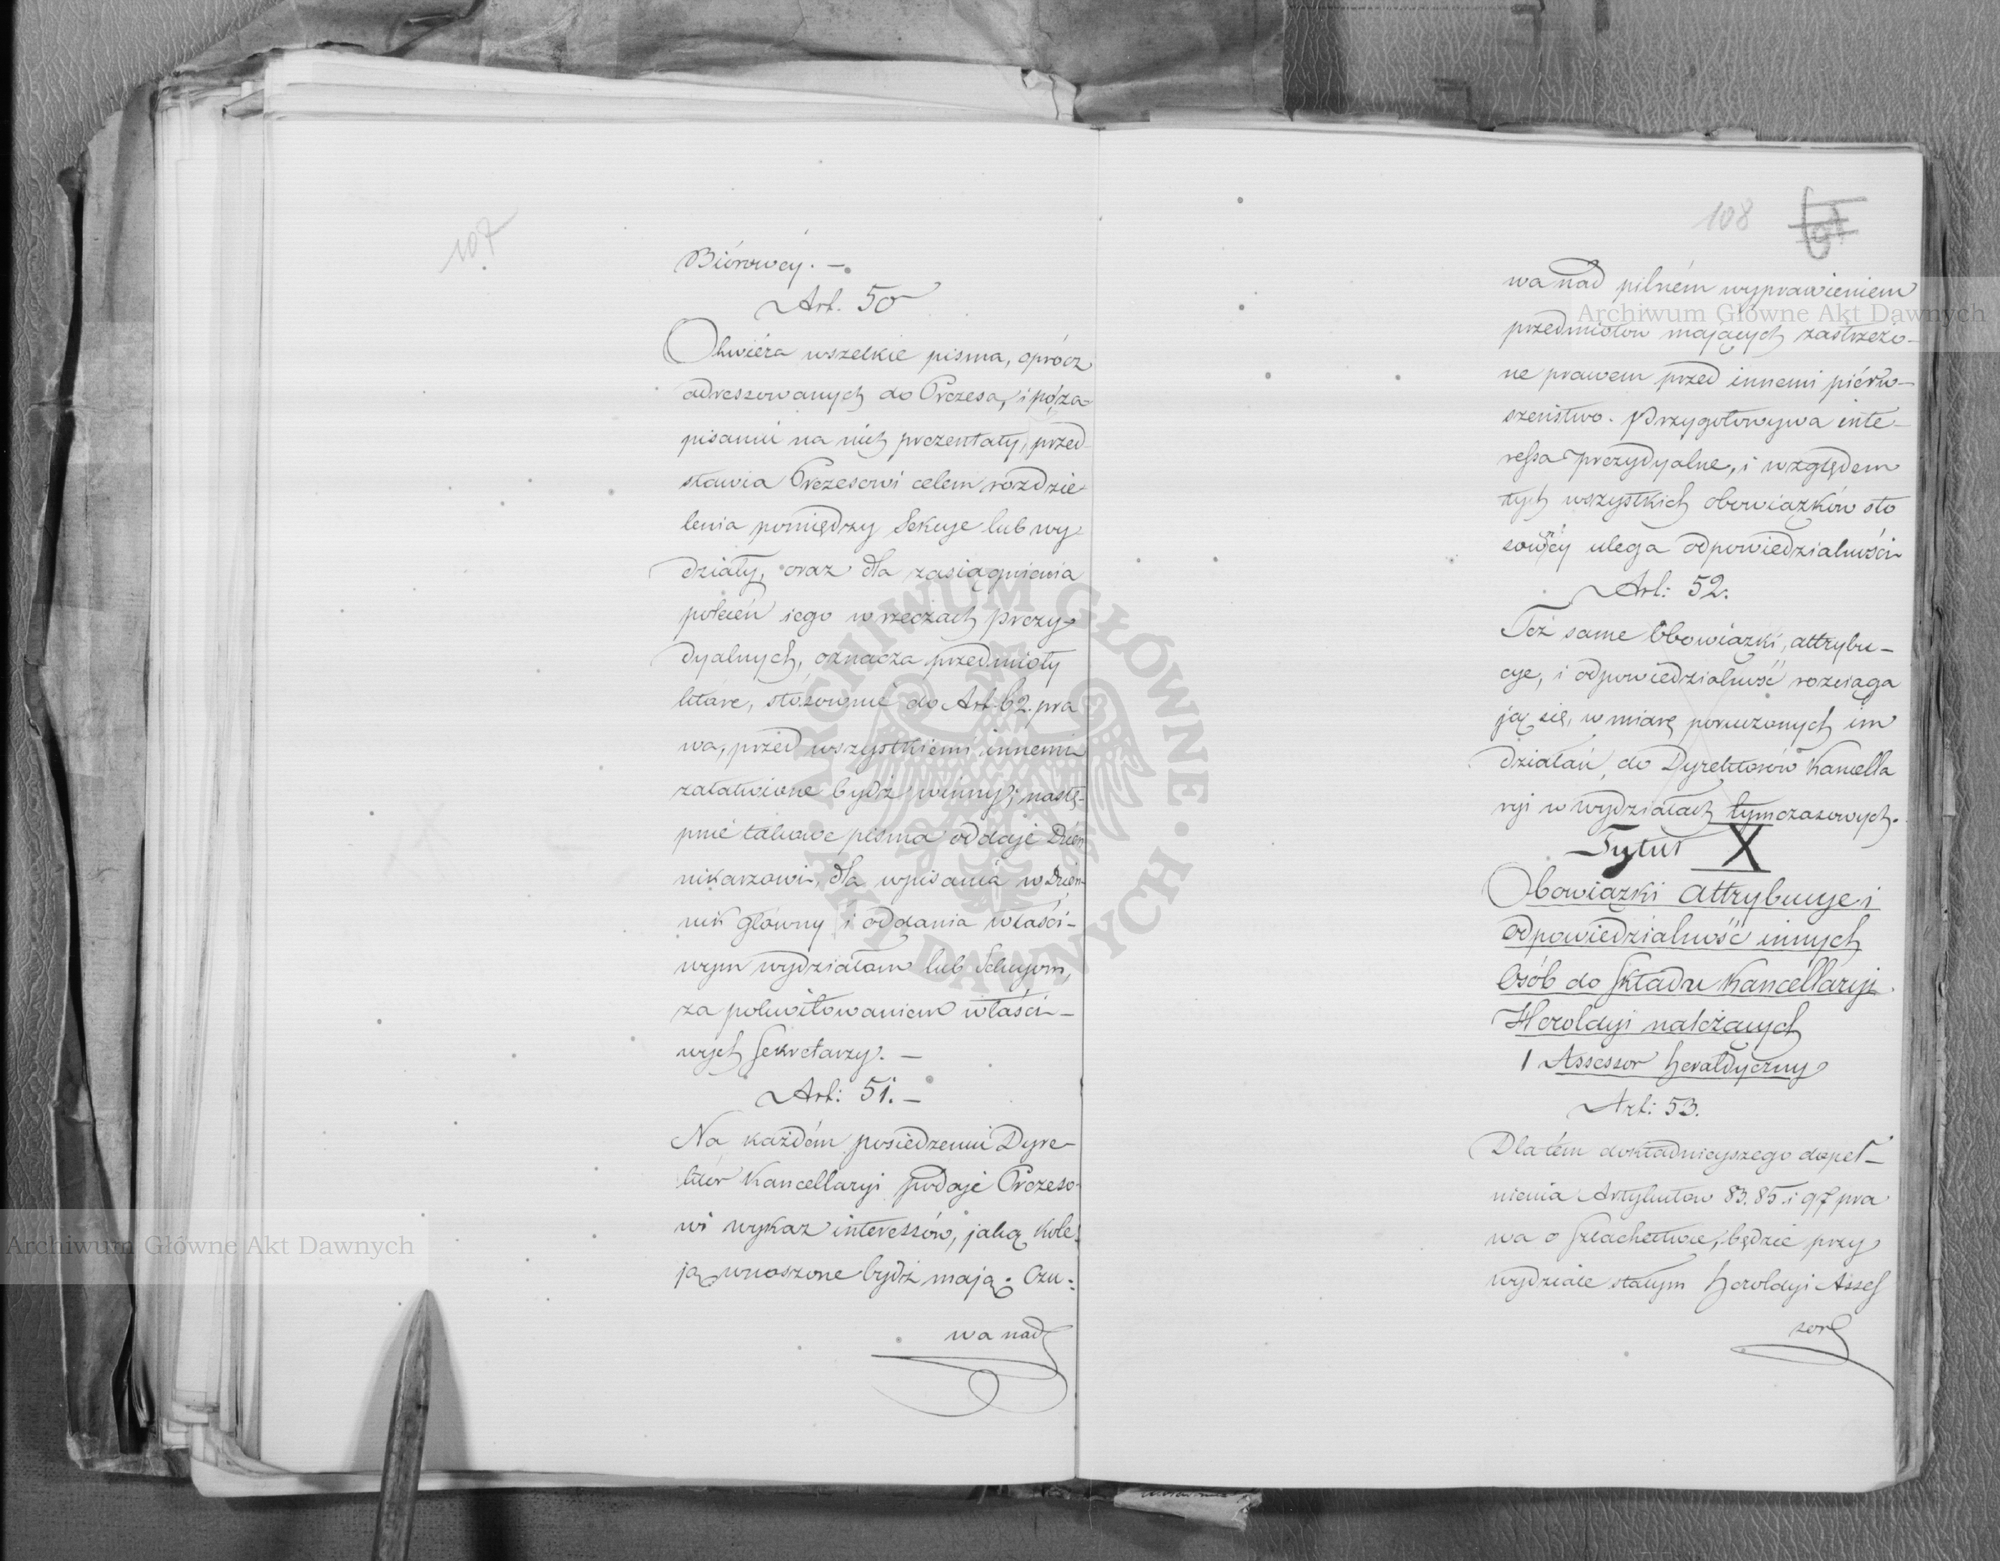 107
Biórowéy. —
Art. 50
Otwiéra wszelkie pisma, oprócz
adressowanych do Prezesa, i po za-
pisaniu na nich prezentaty, przed-
stawia Prezesowi celem rozdzie-
lenia pomiędzy Sekcye lub wy-
działy, oraz dla zasiągnienia
poleceń iego w rzeczach Prezy-
dyalnych, oznacza przedmioty
które, stósownie do Art. 62. pra
wa, przed wszystkiemi innemi
załatwione bydź winny; nastę-
pnie takowe pisma oddaje Dzien
nikarzowi, dla wpisania w Dzien-
nik główny i oddania właści-
wym wydziałom lub Sekcyom,
za pokwitowaniem właści-
wych Sekretarzy. —
Art: 51. —
Na każdém posiedzeniu Dyre-
ktor Kancellaryi podaje Prezeso-
wi wykaz interessów, jaką kole-
ją wnoszone bydź mają. Czu-
wa nad
108
wa nad pilném wyprawieniem
przedmiotów mających zastrzeżo-
ne prawem przed innemi piérw-
szeństwo. Przygotowywa inte-
ressa prezydyalne, i względem
tych wszystkich obowiązków sto
ulega odpowiedzialności
Art: 52.
Też same Obowiązki, attrybu-
cye, i odpowiedzialność rozciąga
ją się, w miarę poruczonych im
działań, do Dyrektorów Kancella
ryi w wydziałach tymczasowych.
Tytuł X
Obowiązki attrybucye i
odpowiedzialność innych
Osób do składu Kancellaryi
Heroldyi należących
1 Assessor heraldyczny
Art: 53.
Dla tém dokładnieyszego dopeł-
nienia Artykułów 83. 85. i 97 pra
wa o szlachectwie, będzie przy
wydziale stałym heroldyi Asses
sor
Archiwum Główne Akt Dawnych
Archiwum Główne Akt Dawnych
ARCHIWUM GŁÓWNE · AKT DAWNYCH ·